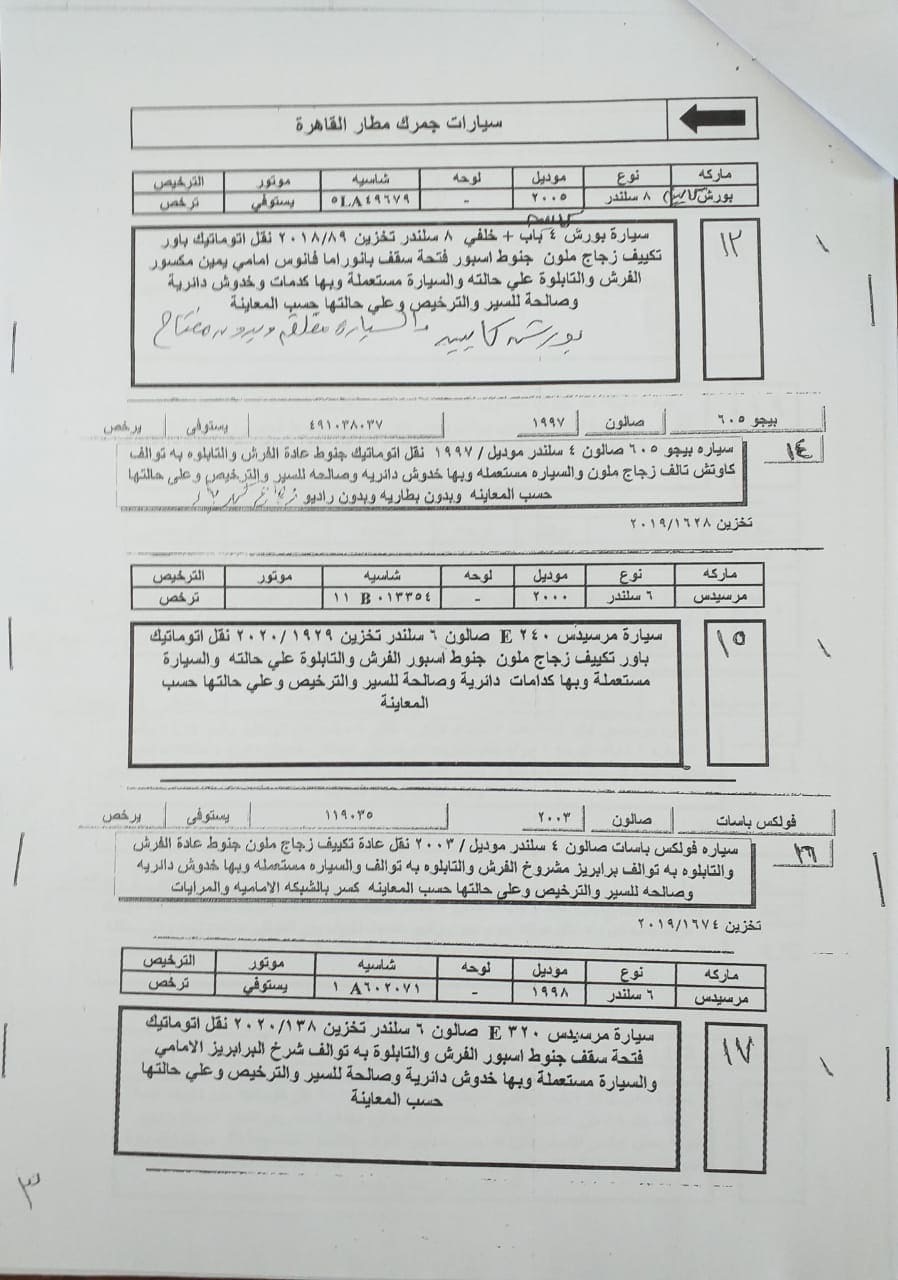 سيارات جمرك مطار القاهرة
ماركه نوع موديل لوحه شاسيه موتور الترخيص
بورش كايين ٨ سلندر ٢٠٠٥ - ٥LA٤٩٦٧٩ يستوفي ترخص
١٣
سيارة بورش ٤ باب + خلفي ٨ سلندر تخزين ٢٠١٨/٨٩ نقل اتوماتيك باور
تكييف زجاج ملون جنوط اسبور فتحة سقف بانوراما فانوس امامي يمين مكسور
الفرش والتابلوة علي حالته والسيارة مستعملة وبها كدمات وخدوش دائرية
وصالحة للسير والترخيص وعلي حالتها حسب المعاينة
بورشه كايين والسيارة مغلقه وبدون مفتاح
بيجو ٦٠٥ صالون ١٩٩٧ ٤٩١٠٣٨٠٣٧ يستوفي يرخص
١٤
سياره بيجو ٦٠٥ صالون ٤ سلندر موديل / ١٩٩٧ نقل اتوماتيك جنوط عادة الفرش والتابلوه به توالف
كاوتش تالف زجاج ملون والسياره مستعمله وبها خدوش دائريه وصالحه للسير والترخيص وعلي حالتها
حسب المعاينه وبدون بطاريه وبدون راديو
تخزين ٢٠١٩/١٦٢٨
ماركه نوع موديل لوحه شاسيه موتور الترخيص
مرسيدس ٦ سلندر ٢٠٠٠ - ١١ B٠١٣٣٥٤ ترخص
١٥
سيارة مرسيدس E ٢٤٠ صالون ٦ سلندر تخزين ٢٠٢٠/١٩٢٩ نقل اتوماتيك
باور تكييف زجاج ملون جنوط اسبور الفرش والتابلوة علي حالته والسيارة
مستعملة وبها كدامات دائرية وصالحة للسير والترخيص وعلي حالتها حسب
المعاينة
فولكس باسات صالون ٢٠٠٣ ١١٩٠٣٥ يستوفي يرخص
١٦
سياره فولكس باسات صالون ٤ سلندر موديل / ٢٠٠٣ نقل عادة تكييف زجاج ملون جنوط عادة الفرش
والتابلوه به توالف برابريز مشروخ الفرش والتابلوه به توالف والسياره مستعمله وبها خدوش دائريه
وصالحه للسير والترخيص وعلي حالتها حسب المعاينه كسر بالشبكه الاماميه والمرايات
تخزين ٢٠١٩/١٦٧٤
ماركه نوع موديل لوحه شاسيه موتور الترخيص
مرسيدس ٦ سلندر ١٩٩٨ - ١ A٦٠٢٠٧١ يستوفي ترخص
١٧
سيارة مرسيدس E ٣٢٠ صالون ٦ سلندر تخزين ٢٠٢٠/١٣٨ نقل اتوماتيك
فتحة سقف جنوط اسبور الفرش والتابلوة به توالف شرخ البرابريز الامامي
والسيارة مستعملة وبها خدوش دائرية وصالحة للسير والترخيص وعلي حالتها
حسب المعاينة
٣